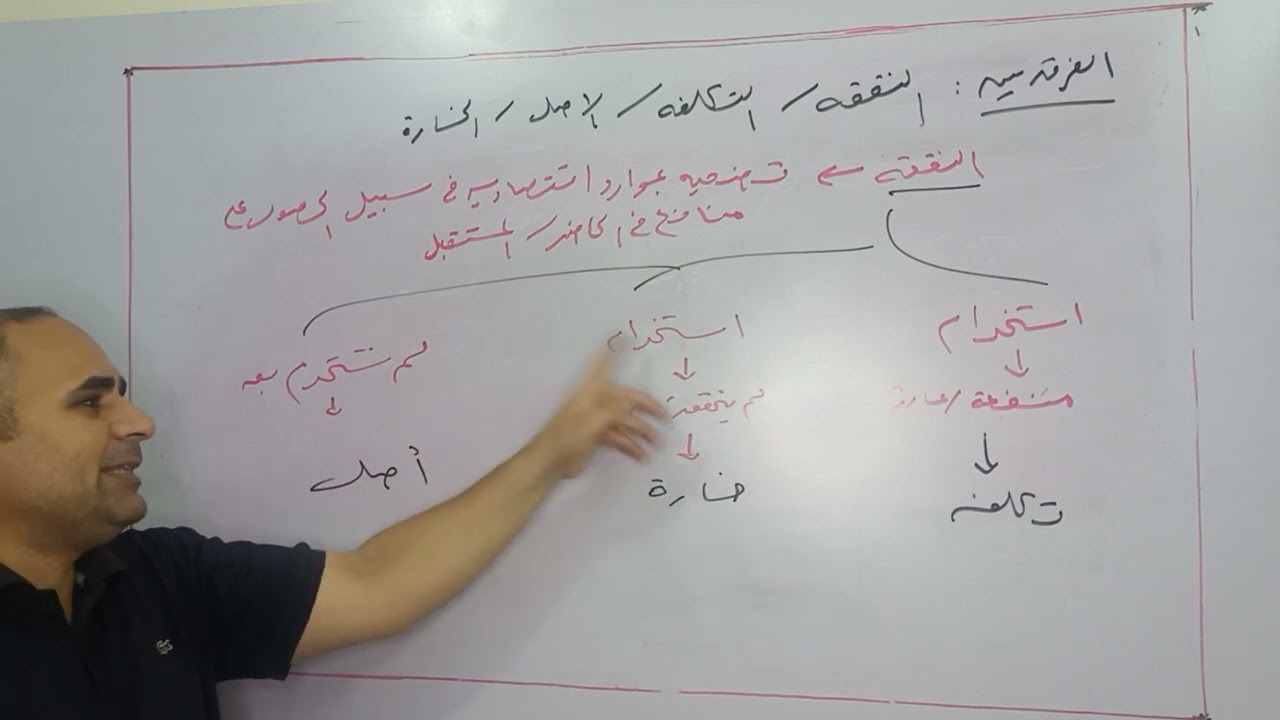 الفرق بين : النفقه / التكلفه / الاصل / الخسارة
النفقة ← تضحيه بموارد اقتصاديه في سبيل الحصول على
منافع في الحاضر / المستقبل
استخدام
↓
منفعة / عادة
↓
تكلفه
استخدام
↓
لم يتحقق
↓
خسارة
لم تستخدم بعد
↓
أصل